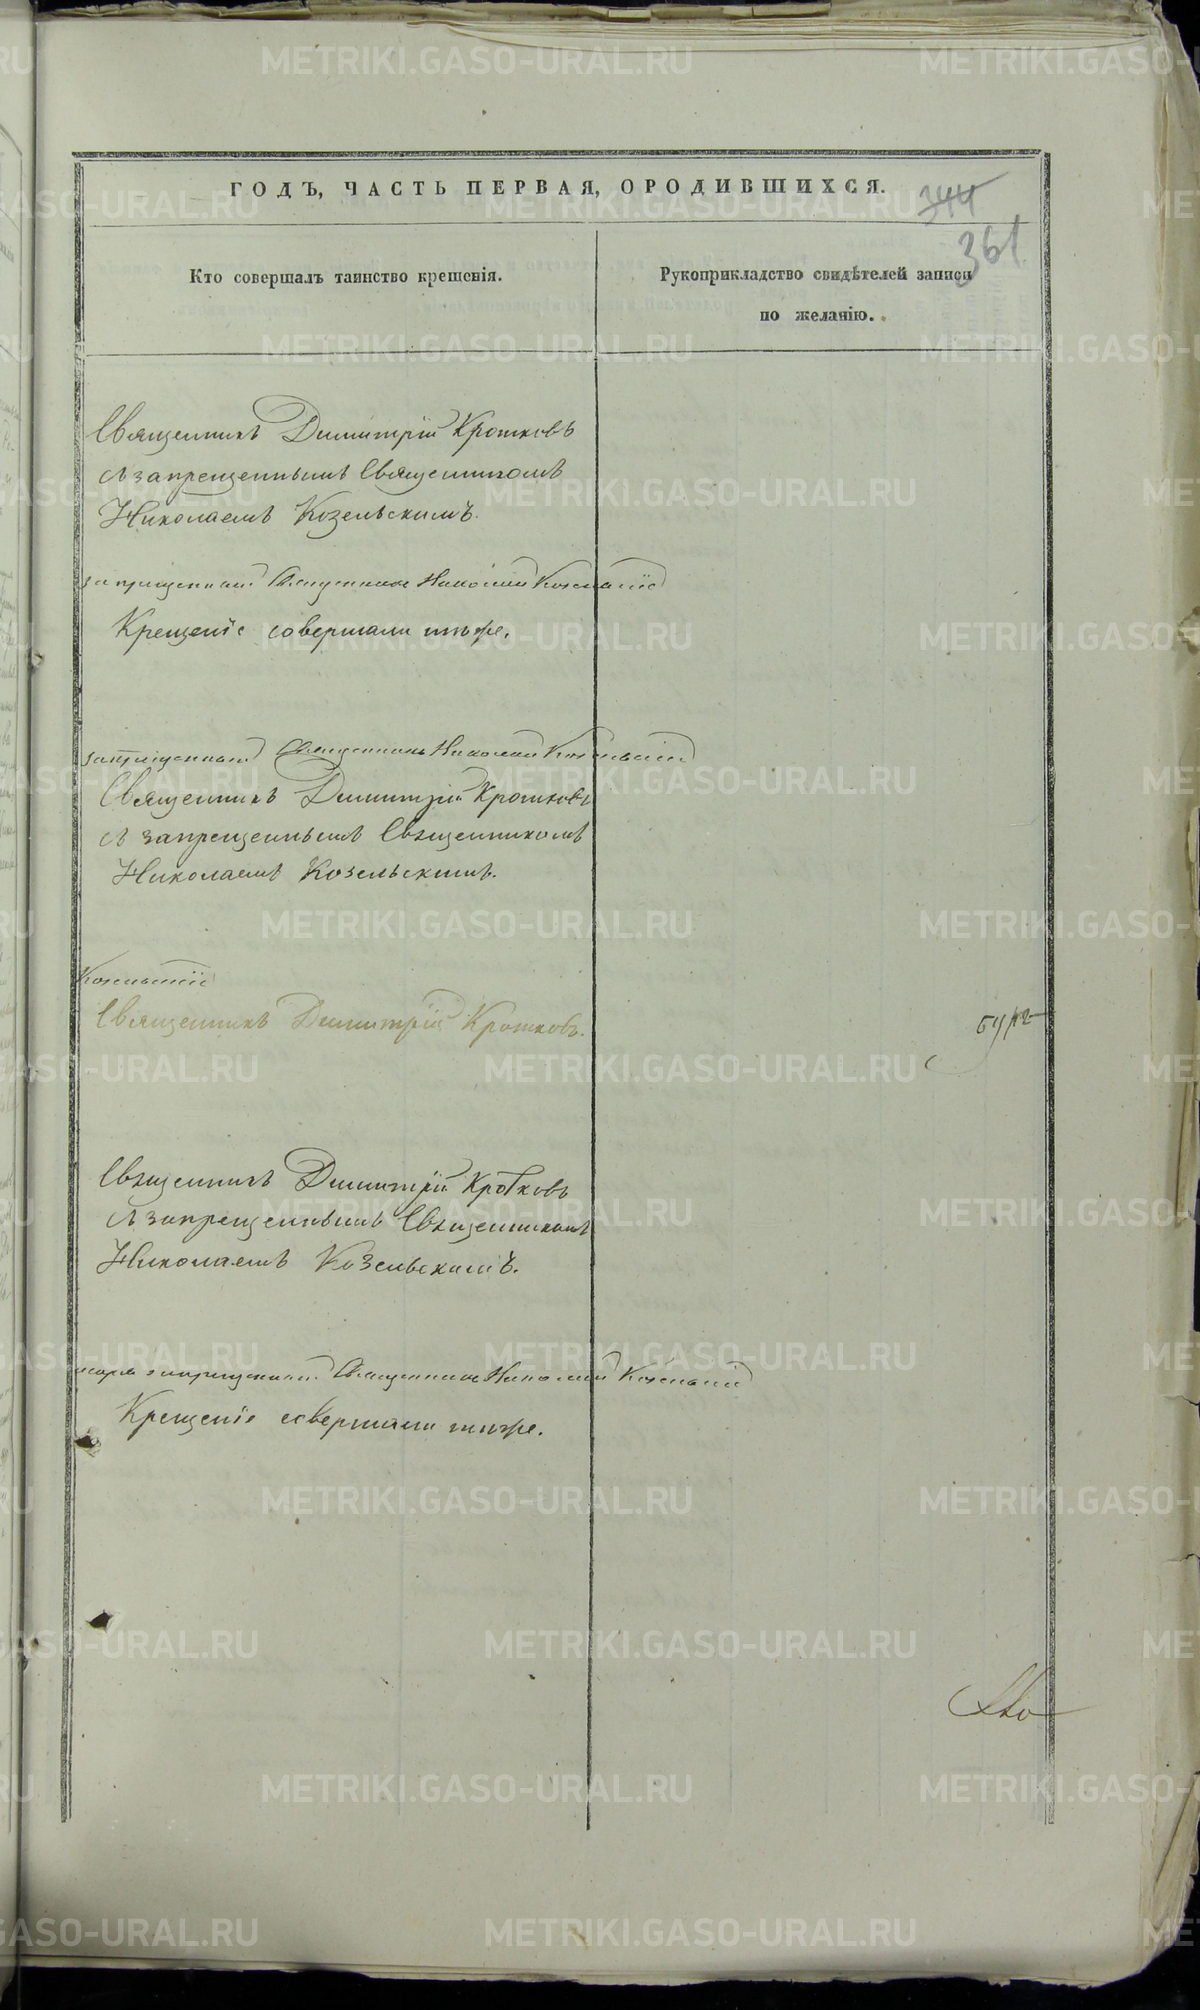 ГОДЪ, ЧАСТЬ ПЕРВАЯ, О РОДИВШИХСЯ.
344
361
Кто совершалъ таинство крещенія.
Рукоприкладство свидѣтелей записи
по желанію.
Священникъ Димитрій Кротковъ
съ запрещеннымъ Священникомъ
Николаемъ Козельскимъ.
запрещенный Священникъ Николай Козельскій
Крещеніе совершали тѣже.
запрещенный Священникъ Николай Козельскій
Священникъ Димитрій Кротковъ
съ запрещеннымъ Священникомъ
Николаемъ Козельскимъ.
Козельскій
Священникъ Димитрій Кротковъ.
Священникъ Димитрій Кротковъ
съ запрещеннымъ Священникомъ
Николаемъ Козельскимъ.
запрещенный Священникъ Николай Козельскій
Крещеніе совершали тѣже.
METRIKI.GASO-URAL.RU